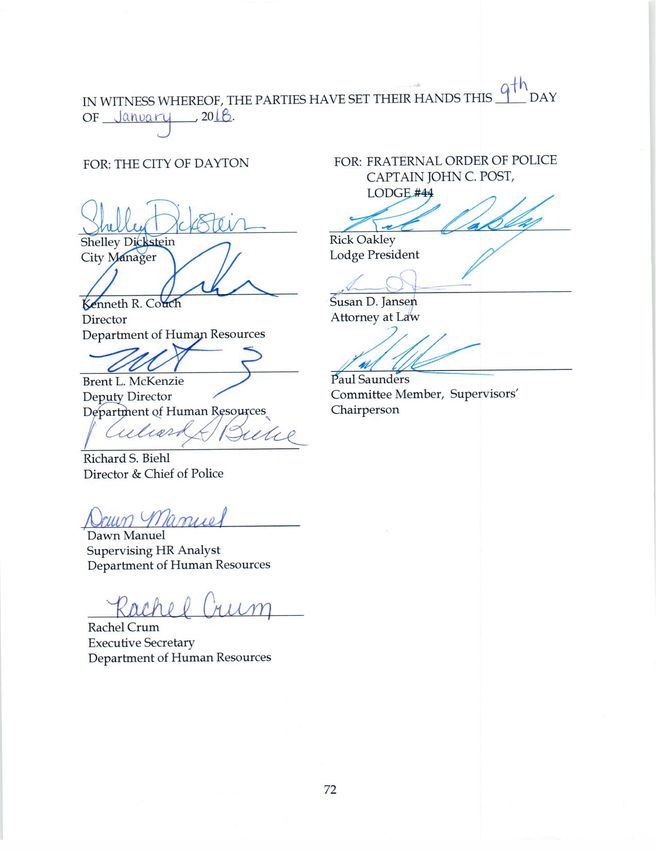 IN WITNESS WHEREOF, THE PARTIES HAVE SET THEIR HANDS THIS 9th DAY
OF January, 2018.
FOR: THE CITY OF DAYTON
Shelley Dickstein
Shelley Dickstein
City Manager
Kenneth R. Couch
Director
Department of Human Resources
Brent L. McKenzie
Deputy Director
Department of Human Resources
Richard S Biehl
Richard S. Biehl
Director & Chief of Police
Dawn Manuel
Dawn Manuel
Supervising HR Analyst
Department of Human Resources
Rachel Crum
Rachel Crum
Executive Secretary
Department of Human Resources
FOR: FRATERNAL ORDER OF POLICE
CAPTAIN JOHN C. POST,
LODGE #44
Rick Oakley
Rick Oakley
Lodge President
Susan D. Jansen
Attorney at Law
Paul Saunders
Committee Member, Supervisors'
Chairperson
72